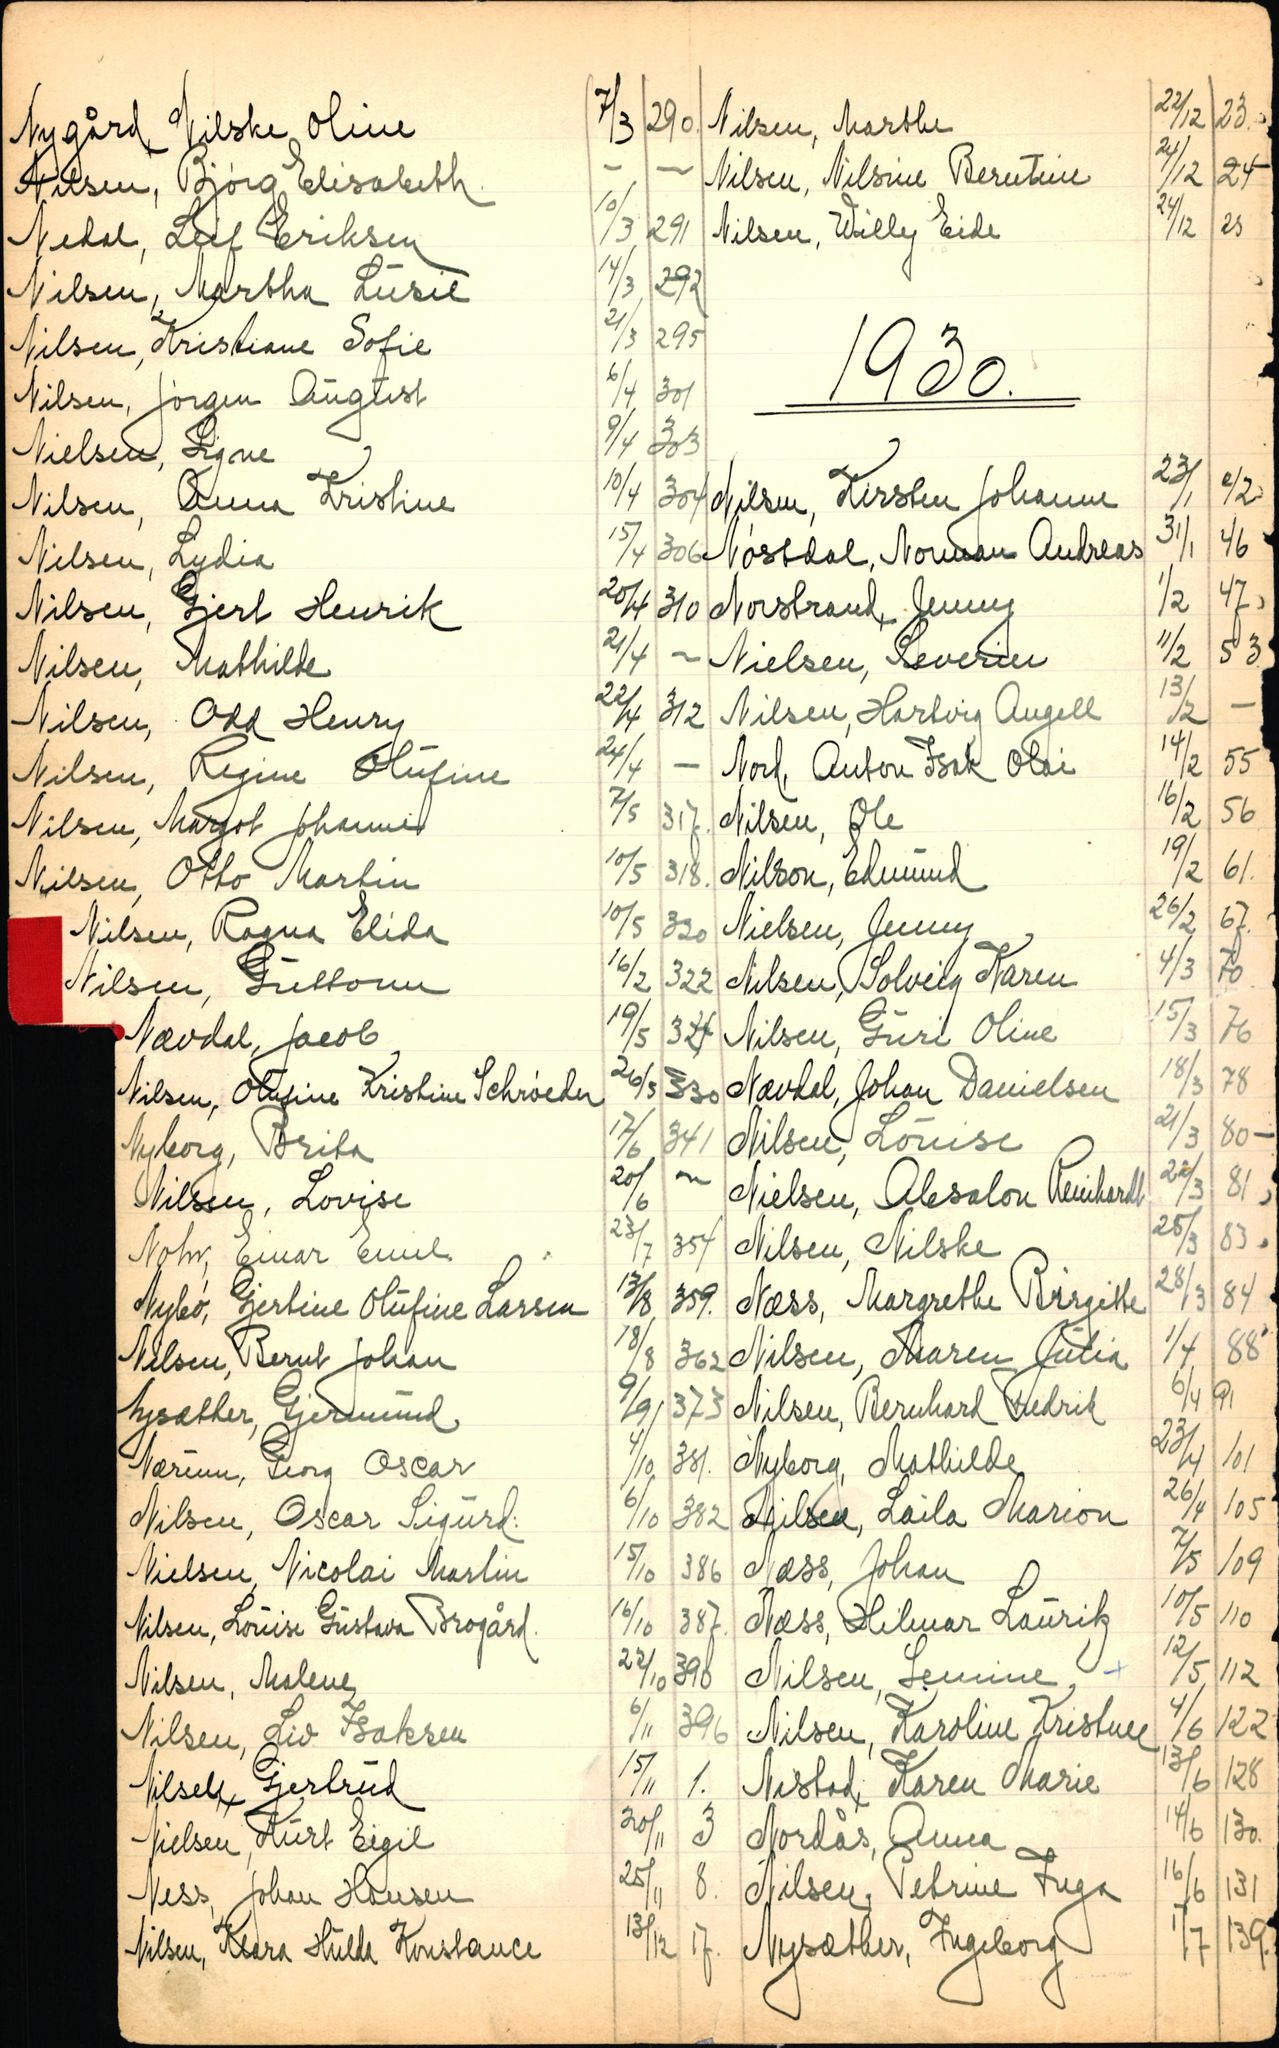 Nygård Nilske Oline 7/3 290.
Nilsen, Bjørg Elisabeth. - -
Nedal, Leif Eriksen 10/3 291
Nilsen, Martha Lusie 14/3 292
Nilsen, Kristiane Sofie 21/3 295
Nilsen, Jörgen August 6/4 301
Nielsen, Signe 9/4 303
Nilsen, Anna Kristine 10/4 304
Nilsen, Lydia 15/4 306
Nilsen, Gjert Henrik 20/4 310
Nilsen, Mathilde 21/4 -
Nilsen, Odd Henry 22/4 312
Nilsen, Regine Olufine 24/4 -
Nilsen, Margot Johanne 7/5 317.
Nilsen, Otto Martin 10/5 318.
Nilsen, Ragna Elida 10/5 320
Nilsen, Guttorm 16/2 322
Nævdal, Jacob 19/5 324
Nilsen, Olufine Kristine Schrøeder 26/5 330
Nyborg, Brita 17/6 341
Nilsen, Lovise 20/6 -
Nohr, Einar Emil 23/7 354
Nybö, Gjertine Olufine Larsen 13/8 359.
Nilsen, Bernt Johan 18/8 362
Nysæther, Gjermund 9/9 373
Nærum, Georg Oscar 4/10 381.
Nilsen, Oscar Sigurd. 6/10 382
Nielsen, Nicolai Martin 15/10 386
Nilsen, Louise Gustava Brogård. 16/10 387.
Nilsen, Malene 22/10 390
Nilsen, Liv Isaksen 6/11 396
Nilsen, Gjertrud 15/11 1.
Nielsen, Kurt Eigil 20/11 3
Ness, Johan Hansen 25/11 8.
Nilsen, Klara Hulda Konstance 13/12 17.
Nilsen, Marthe 22/12 23.
Nilsen, Nilsine Berntine 24/12 24
Nilsen, Willy Eide 24/12 25
1930.
Nilsen, Kirsten Johanne 23/1 42
Nøstdal, Norman Andreas 31/1 46
Norstrand, Jenny 1/2 47
Nielsen, Severin 11/2 53.
Nilsen, Hartvig Angell 13/2 -
Nord, Anton Isak Olai 14/2 55
Nilsen, Ole 16/2 56
Nilson, Edmund 19/2 61.
Nielsen, Jenny 26/2 67.
Nilsen, Solveig Karen 4/3 70.
Nilsen, Guri Oline 15/3 76
Nævdal, Johan Danielsen 18/3 78
Nilsen, Louise 21/3 80-
Nielsen, Absalon Reinhardt 22/3 81
Nilsen, Nilske 25/3 83.
Næss, Margrethe Birgitte 28/3 84
Nilsen, Maren Julia 1/4 88
Nilsen, Bernhard Fredrik 6/4 91
Nyborg, Mathilde 23/4 101
Nilsen, Laila Marion 26/4 105
Næss, Johan 7/5 109
Næss, Hilmar Lauritz 10/5 110
Nilsen, Semine 12/5 112
Nilsen, Karoline Kristine 4/6 122
Nistad, Karen Marie 13/6 128
Nordås, Anna 14/6 130.
Nilsen, Petrine Inga 16/6 131
Nysæther, Ingeborg 1/7 139.